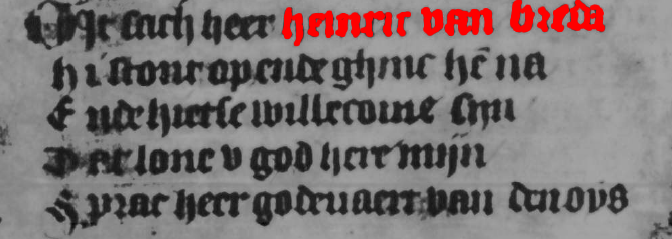 Die sach heer heinric van breda
hi stont op ende ghinc hē na
Ende hietse willecome sijn
Des lone v god here mijn
Sprac heer godeuaert van den ovs